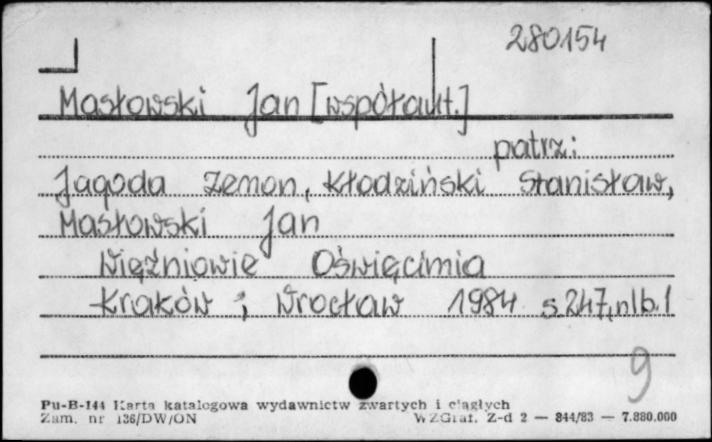 280154
Masłowski Jan [współaut.]
patrz:
Jagoda Zenon, Kłodziński Stanisław,
Masłowski Jan
Więźniowie Oświęcimia
Kraków ; Wrocław 1984 s. 247, nlb. 1
9
Pu-B-144 Karta katalogowa wydawnictw zwartych i ciągłych
Zam. nr 136/DW/ON WZGraf. Z-d 2 — 844/83 — 7.880.000